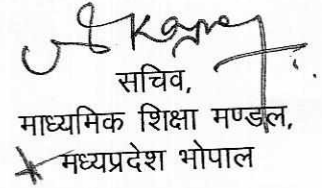 सचिव,
माध्यमिक शिक्षा मण्डल,
मध्यप्रदेश भोपाल